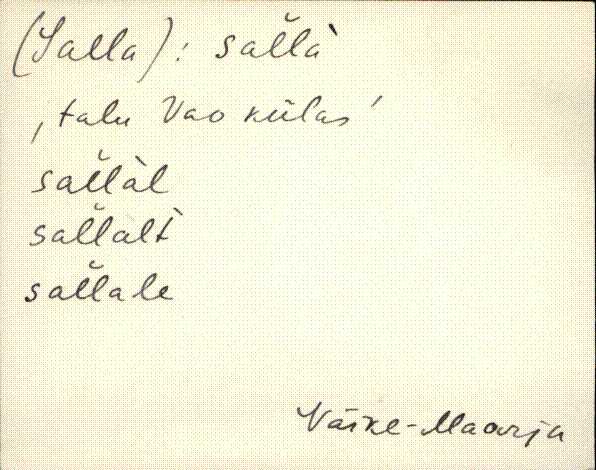 (Salla): sal̆là
‚talu Vao külas’
sal̆làl
sal̆lalt̀
sal̆lale
Väike-Maarja